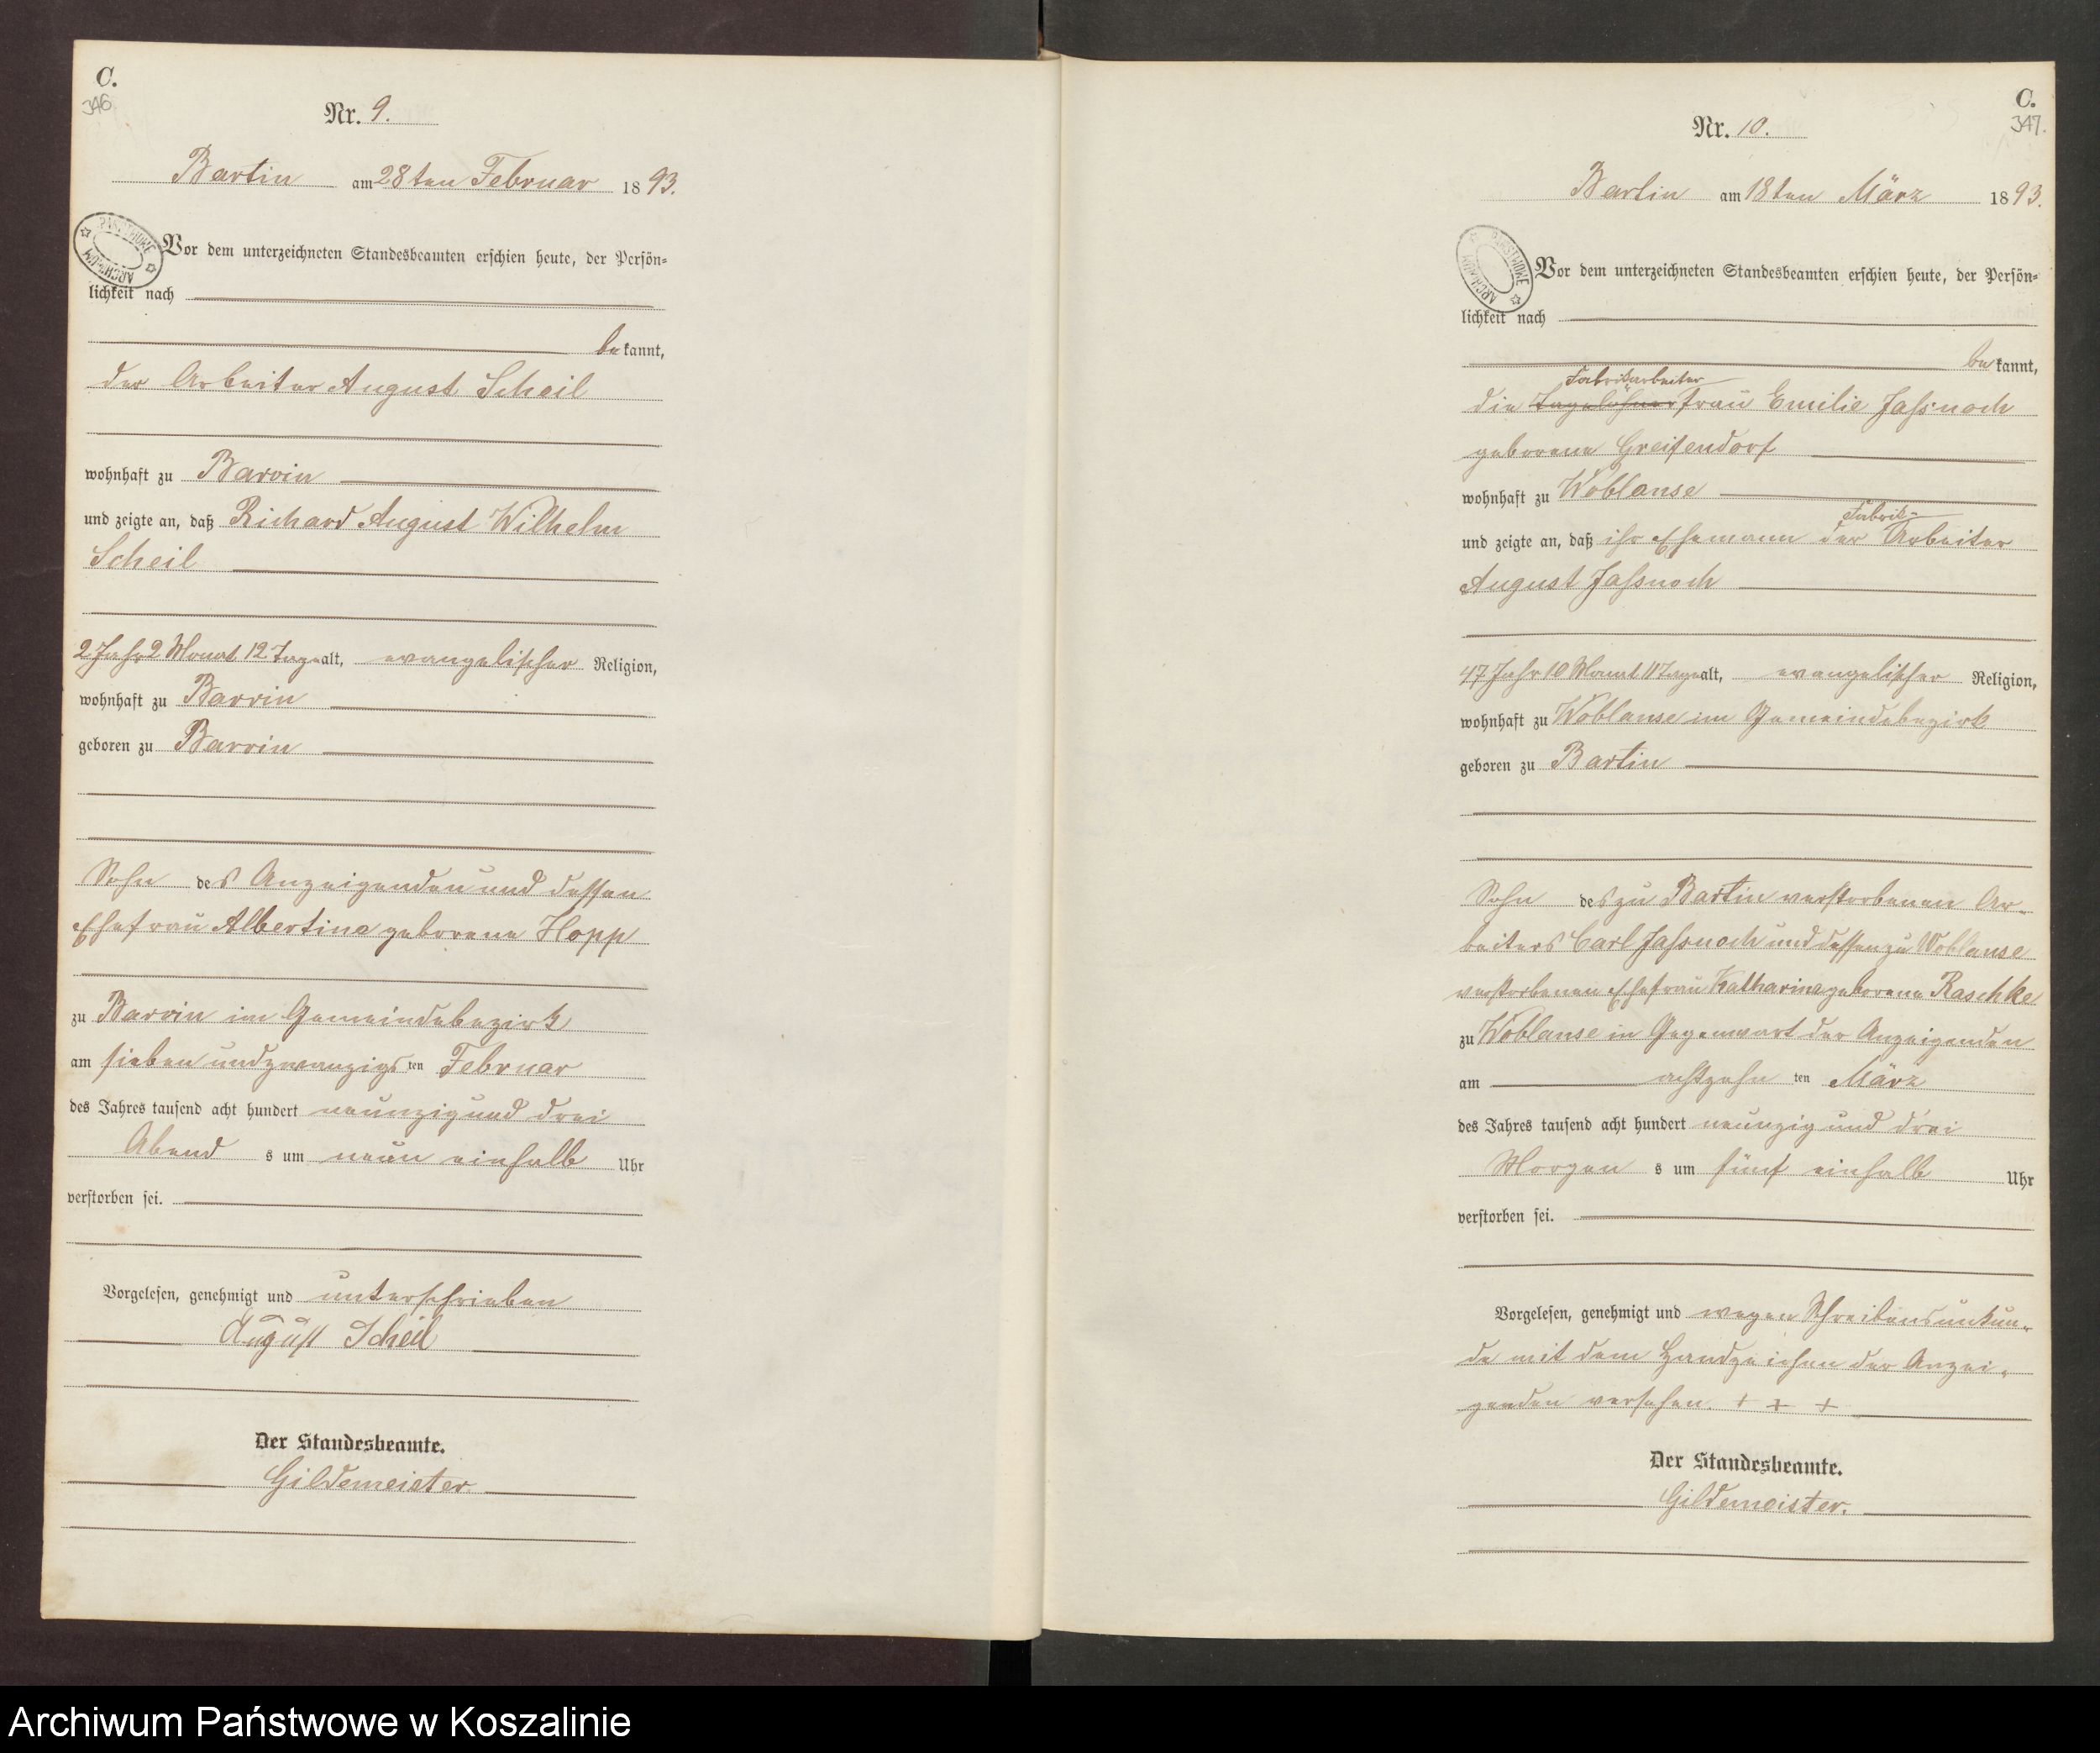 C.
346
Nr. 9.
Bartin am 28ten Februar 1893.
Vor dem unterzeichneten Standesbeamten erschien heute, der Persön-
lichkeit nach
bekannt,
der Arbeiter August Scheil
wohnhaft zu Barvin
und zeigte an, daß Richard August Wilhelm
Scheil
2 Jahr 2 Monat 12 Tage alt, evangelischer Religion,
wohnhaft zu Barvin
geboren zu Barvin
Sohn des Anzeigenden und dessen
Ehefrau Albertine geborene Hopp
zu Barvin im Gemeindebezirk
am sieben und zwanzigsten Februar
des Jahres tausend acht hundert neunzig und drei
Abend s um neun einhalb Uhr
verstorben sei.
Vorgelesen, genehmigt und unterschrieben
August Scheil
Der Standesbeamte.
Gildemeister
C.
347.
Nr. 10.
Bartin am 18ten März 1893.
Vor dem unterzeichneten Standesbeamten erschien heute, der Persön-
lichkeit nach
bekannt,
Fabrikarbeiter
die Tagelöhner frau Emilie Jassnoch
geborene Greifendorf
wohnhaft zu Woblanse
Fabrik-
und zeigte an, daß ihr Ehemann der Arbeiter
August Jassnoch
47 Jahr 10 Monat 11 Tage alt, evangelischer Religion,
wohnhaft zu Woblanse im Gemeindebezirk
geboren zu Bartin
Sohn des zu Bartin verstorbenen Ar-
beiters Carl Jassnoch und dessen zu Woblanse
verstorbenen Ehefrau Katharine geborene Raschke
zu Woblanse in Gegenwart der Anzeigenden
am achtzehn ten März
des Jahres tausend acht hundert neunzig und drei
Morgen s um fünf einhalb Uhr
verstorben sei.
Vorgelesen, genehmigt und wegen Schreibensunkun-
de mit dem Handzeichen der Anzei-
genden versehen. + + +
Der Standesbeamte.
Gildemeister.
ARCHIWUM PAŃSTWOWE
ARCHIWUM PAŃSTWOWE
Archiwum Państwowe w Koszalinie